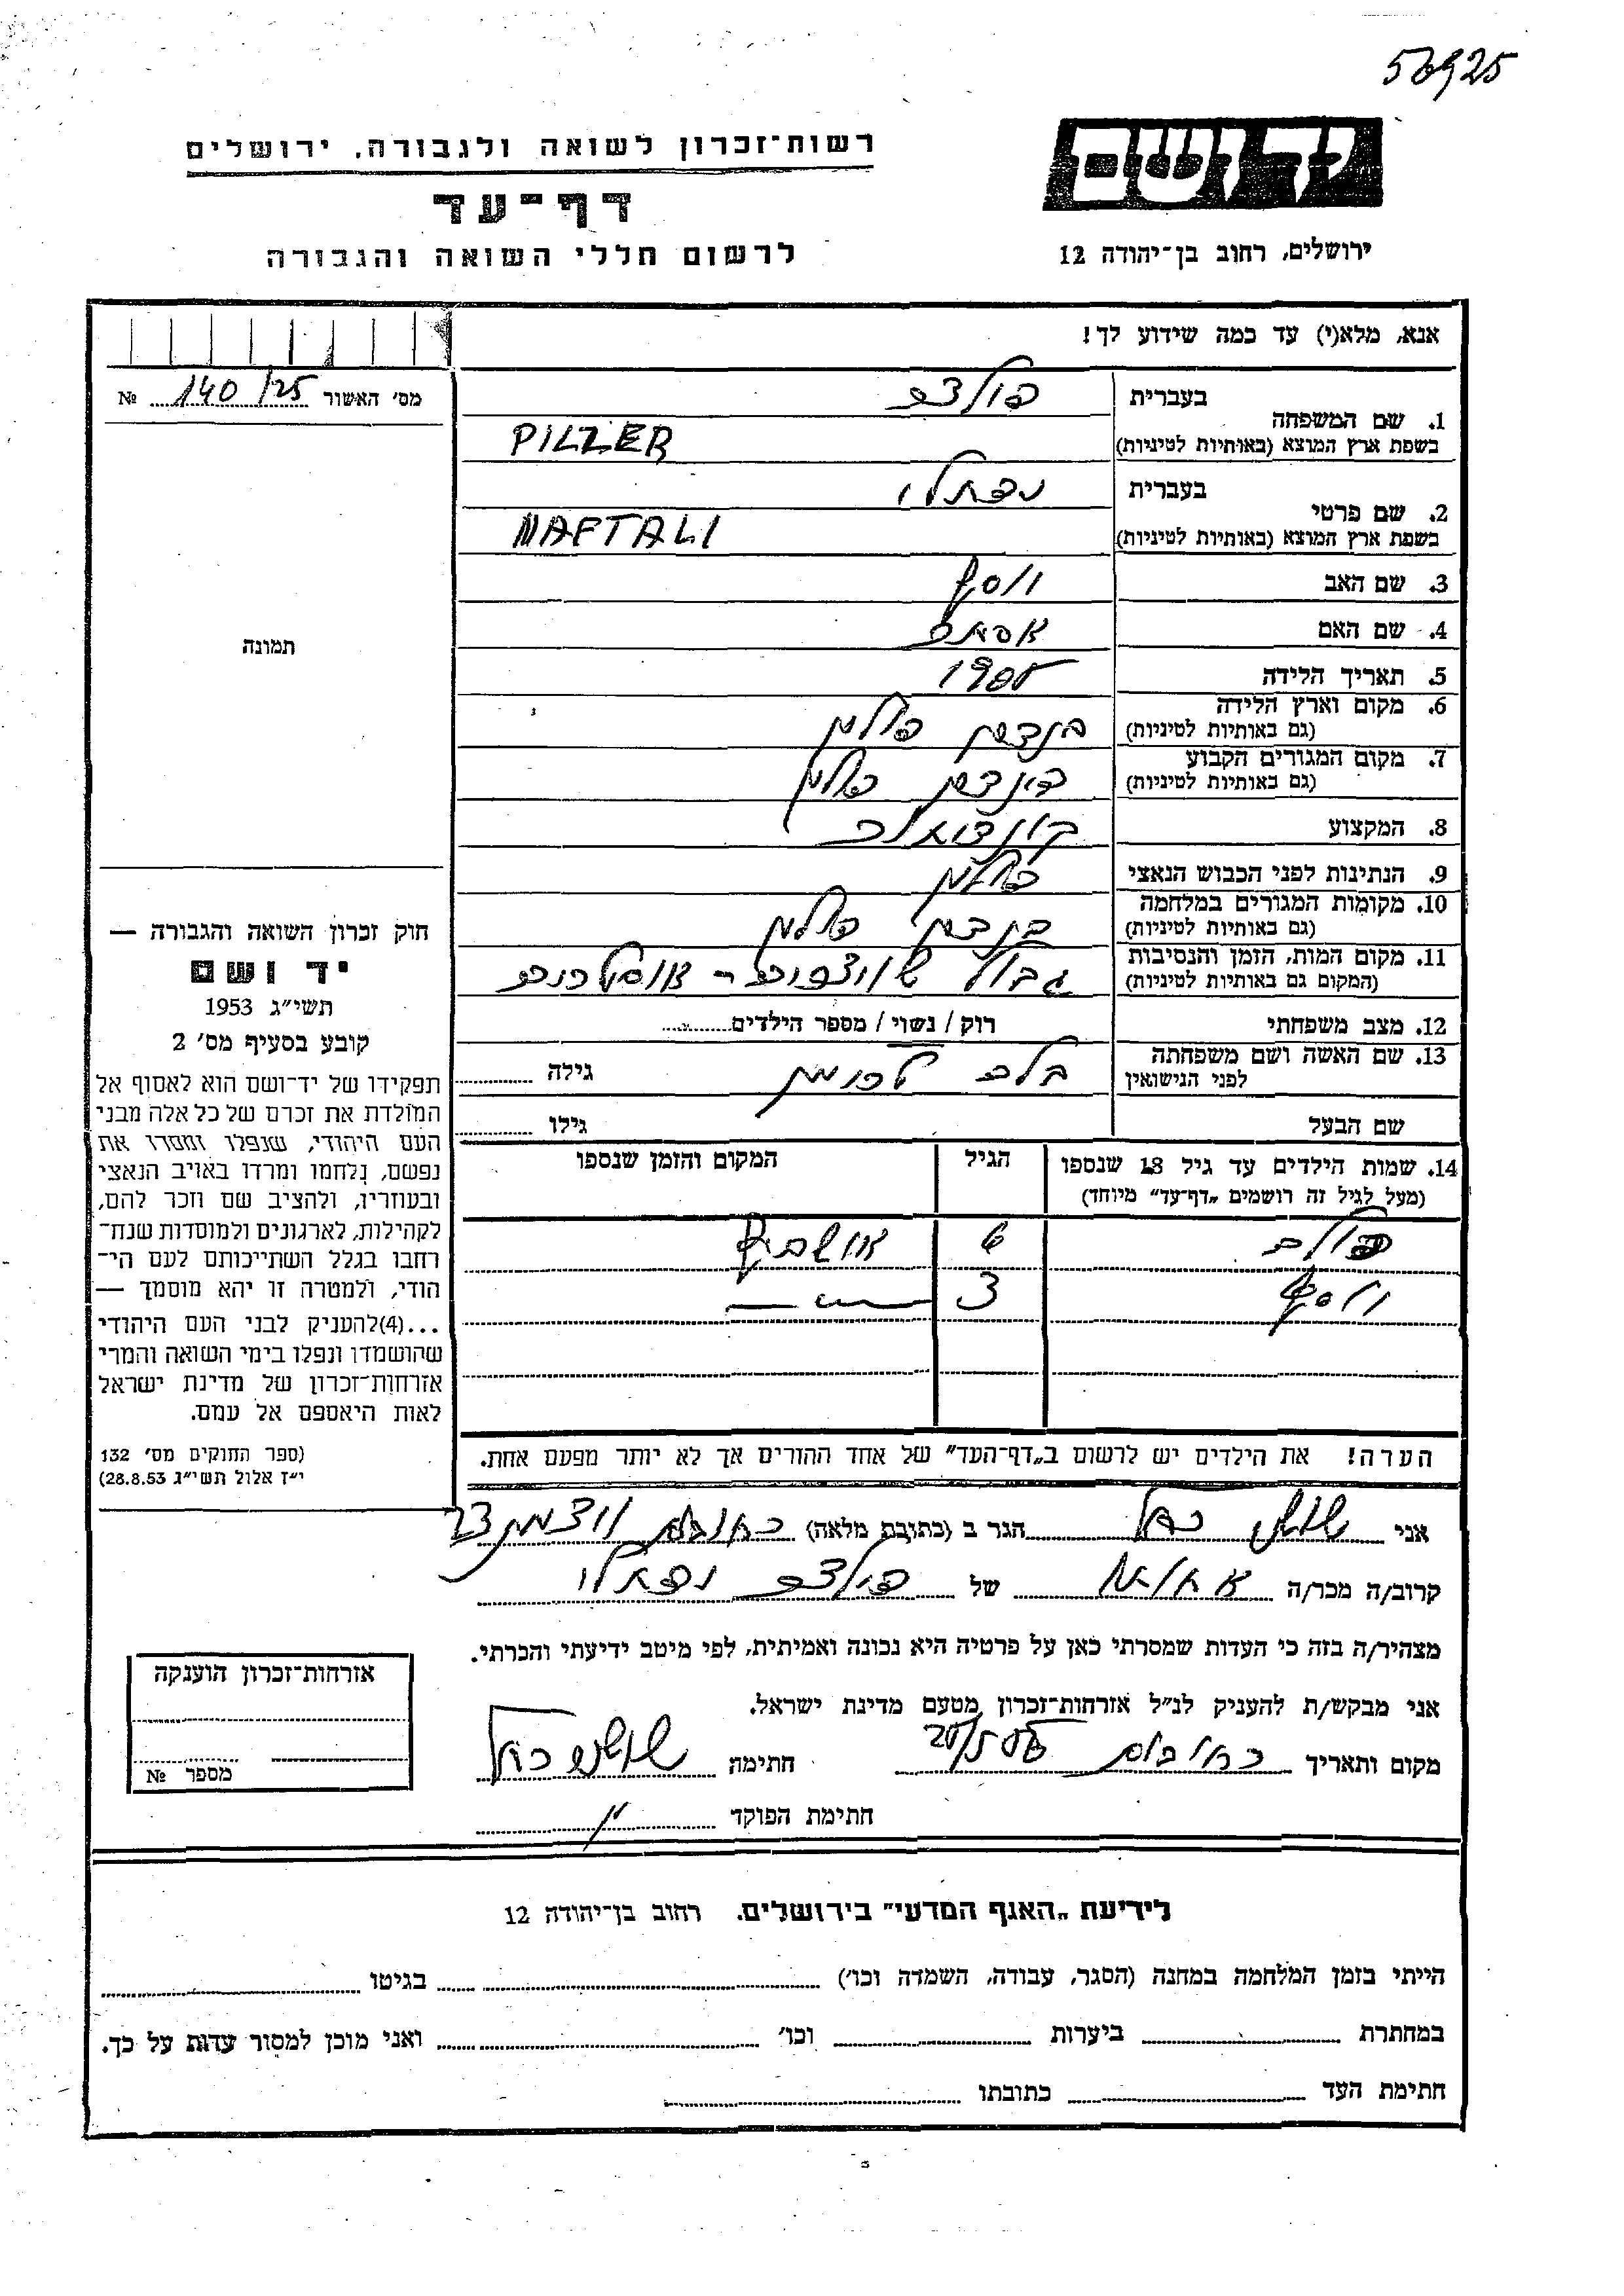 רשות־זכרון לשואה ולגבורה, ירושלים
דף־עד
לרשום חללי השואה והגבורה
יד ושם
ירושלים, רחוב בן־יהודה 12
אנא, מלא(י) עד כמה שידוע לך!
מס׳ האשור 140/25 №
1. שם המשפחה
בעברית פילצר
בשפת ארץ המוצא (באותיות לטיניות) PILZER
2. שם פרטי
בעברית נפתלי
בשפת ארץ המוצא (באותיות לטיניות) NAFTALI
3. שם האב יוסף
4. שם האם אסתר
5. תאריך הלידה
6. מקום ארץ הלידה פולין
(גם באותיות לטיניות)
7. מקום המגורים הקבוע בנדצין פולין
(גם באותיות לטיניות)
8. המקצוע
9. הנתינות לפני הכבוש הנאצי פולין
10. מקומות המגורים במלחמה בנדצין פולין
(גם באותיות לטיניות)
11. מקום המות, הזמן והנסיבות גבול
(המקום גם באותיות לטיניות)
12. מצב משפחתי רוק / נשוי / מספר הילדים
13. שם האשה ושם משפחתה
לפני הנישואין גילה
שם הבעל גילו
14. שמות הילדים עד גיל 18 שנספו הגיל המקום והזמן שנספו
(מעל לגיל זה רושמים „דף־עד״ מיוחד)
6 אושביץ
יוסף 3
הערה! את הילדים יש לרשום ב„דף־העד״ של אחד ההורים אך לא יותר מפעם אחת.
תמונה
חוק זכרון השואה והגבורה —
יד ושם
תשי״ג 1953
קובע בסעיף מס׳ 2
תפקידו של יד־ושם הוא לאסוף אל
המולדת את זכרם של כל אלה מבני
העם היהודי, שנפלו ומסרו את
נפשם, נלחמו ומרדו באויב הנאצי
ובעוזריו, ולהציב שם וזכר להם,
לקהילות, לארגונים ולמוסדות שנח־
רחבו בגלל השתייכותם לעם הי־
הודי, ולמטרה זו יהא מוסמך —
...(4)להעניק לבני העם היהודי
שהושמדו ונפלו בימי השואה והמרי
אזרחות־זכרון של מדינת ישראל
לאות היאספם אל עמם.
(ספר החוקים מס׳ 132
י״ז אלול תשי״ג 28.8.53)
אני הגר ב (כתובת מלאה)
קרוב/ה מכר/ה של פילצר נפתלי
מצהיר/ה בזה כי העדות שמסרתי כאן על פרטיה היא נכונה ואמיתית, לפי מיטב ידיעתי והכרתי.
אני מבקש/ת להעניק לנ״ל אזרחות־זכרון מטעם מדינת ישראל.
מקום ותאריך חתימה
חתימת הפוקד
אזרחות־זכרון הוענקה
מספר №
לידיעת „האגף המדעי״ בירושלים. רחוב בן־יהודה 12
הייתי בזמן המלחמה במחנה (הסגר, עבודה, השמדה וכו׳) בגיטו
במחתרת ביערות וכו׳ ואני מוכן למסור עדות על כך.
חתימת העד כתובתו